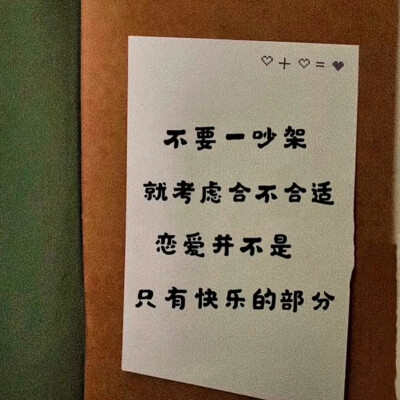 ♡+♡=♥
不要一吵架
就考虑合不合适
恋爱并不是
只有快乐的部分